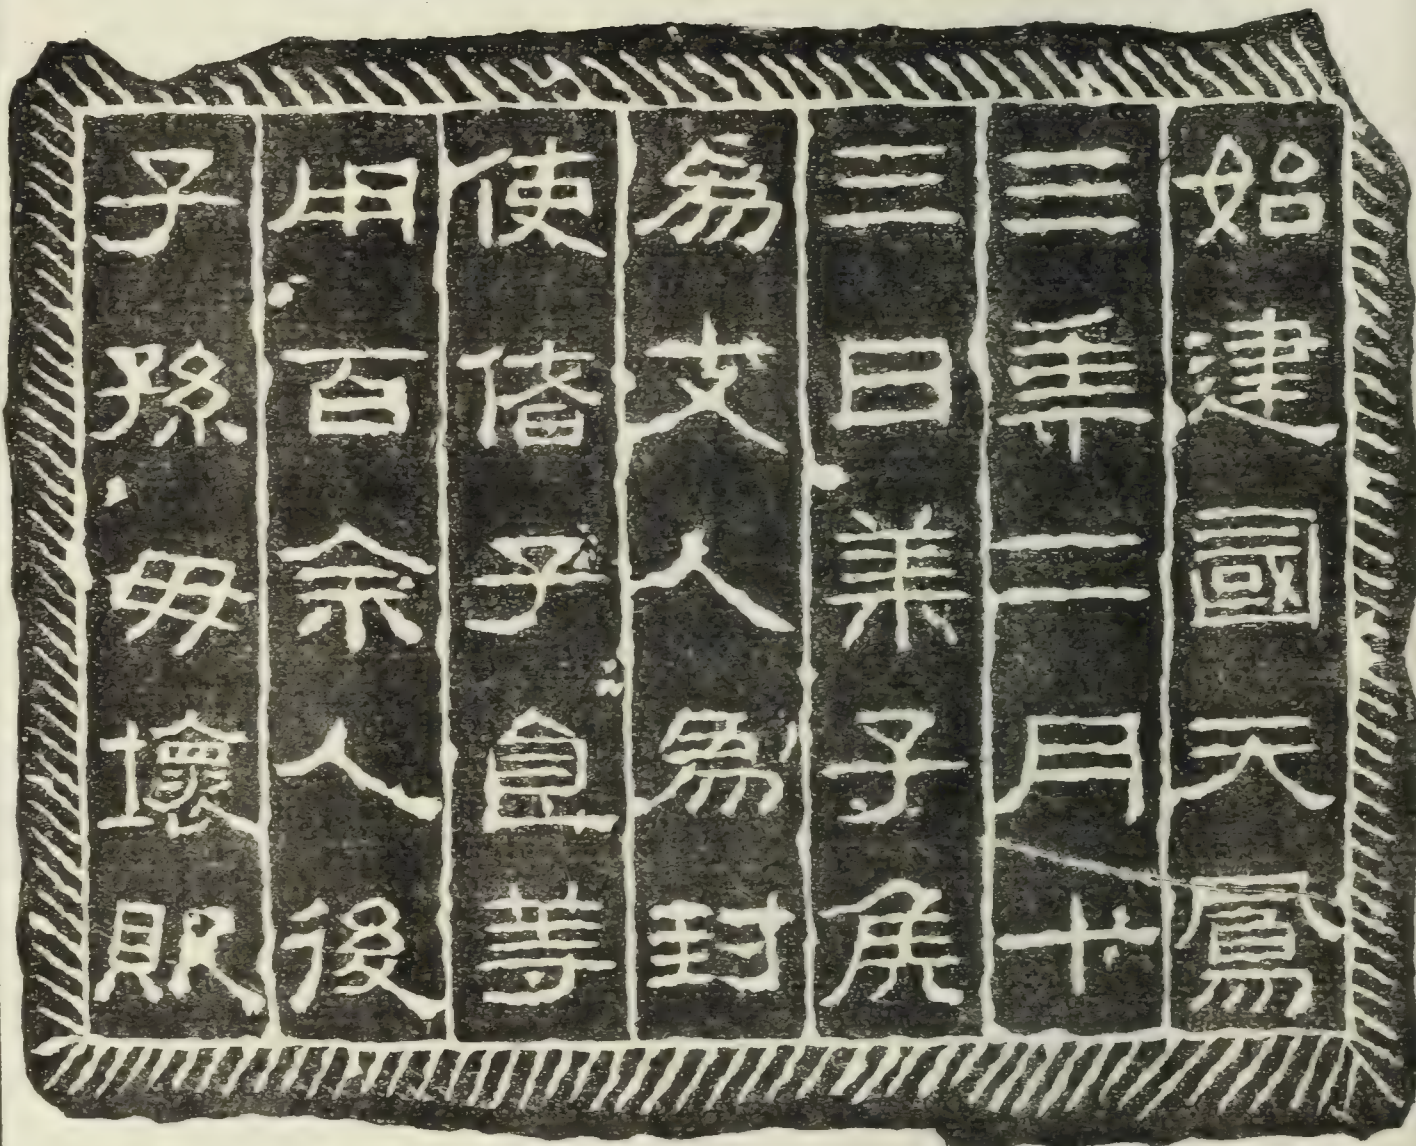 始建國天鳳
三年二月十
三日萊子侯
爲支人爲封
使偖子食等
用百余人後
子孫毋壞敗